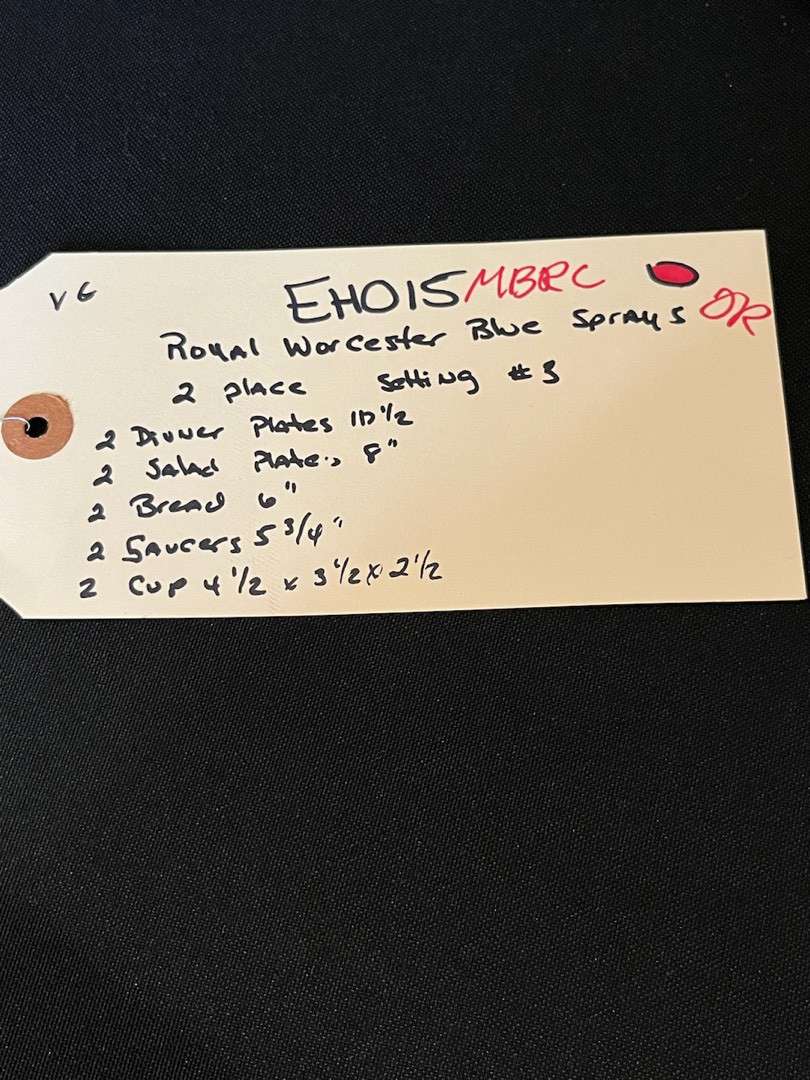 VG
EHO15 MBRC
OR
Royal Worcester Blue Sprays
2 place Setting #3
2 Dinner Plates 10 1/2
2 Salad Plates 8"
2 Bread 6"
2 Saucers 5 3/4"
2 Cup 4 1/2 x 3 1/2 x 2 1/2